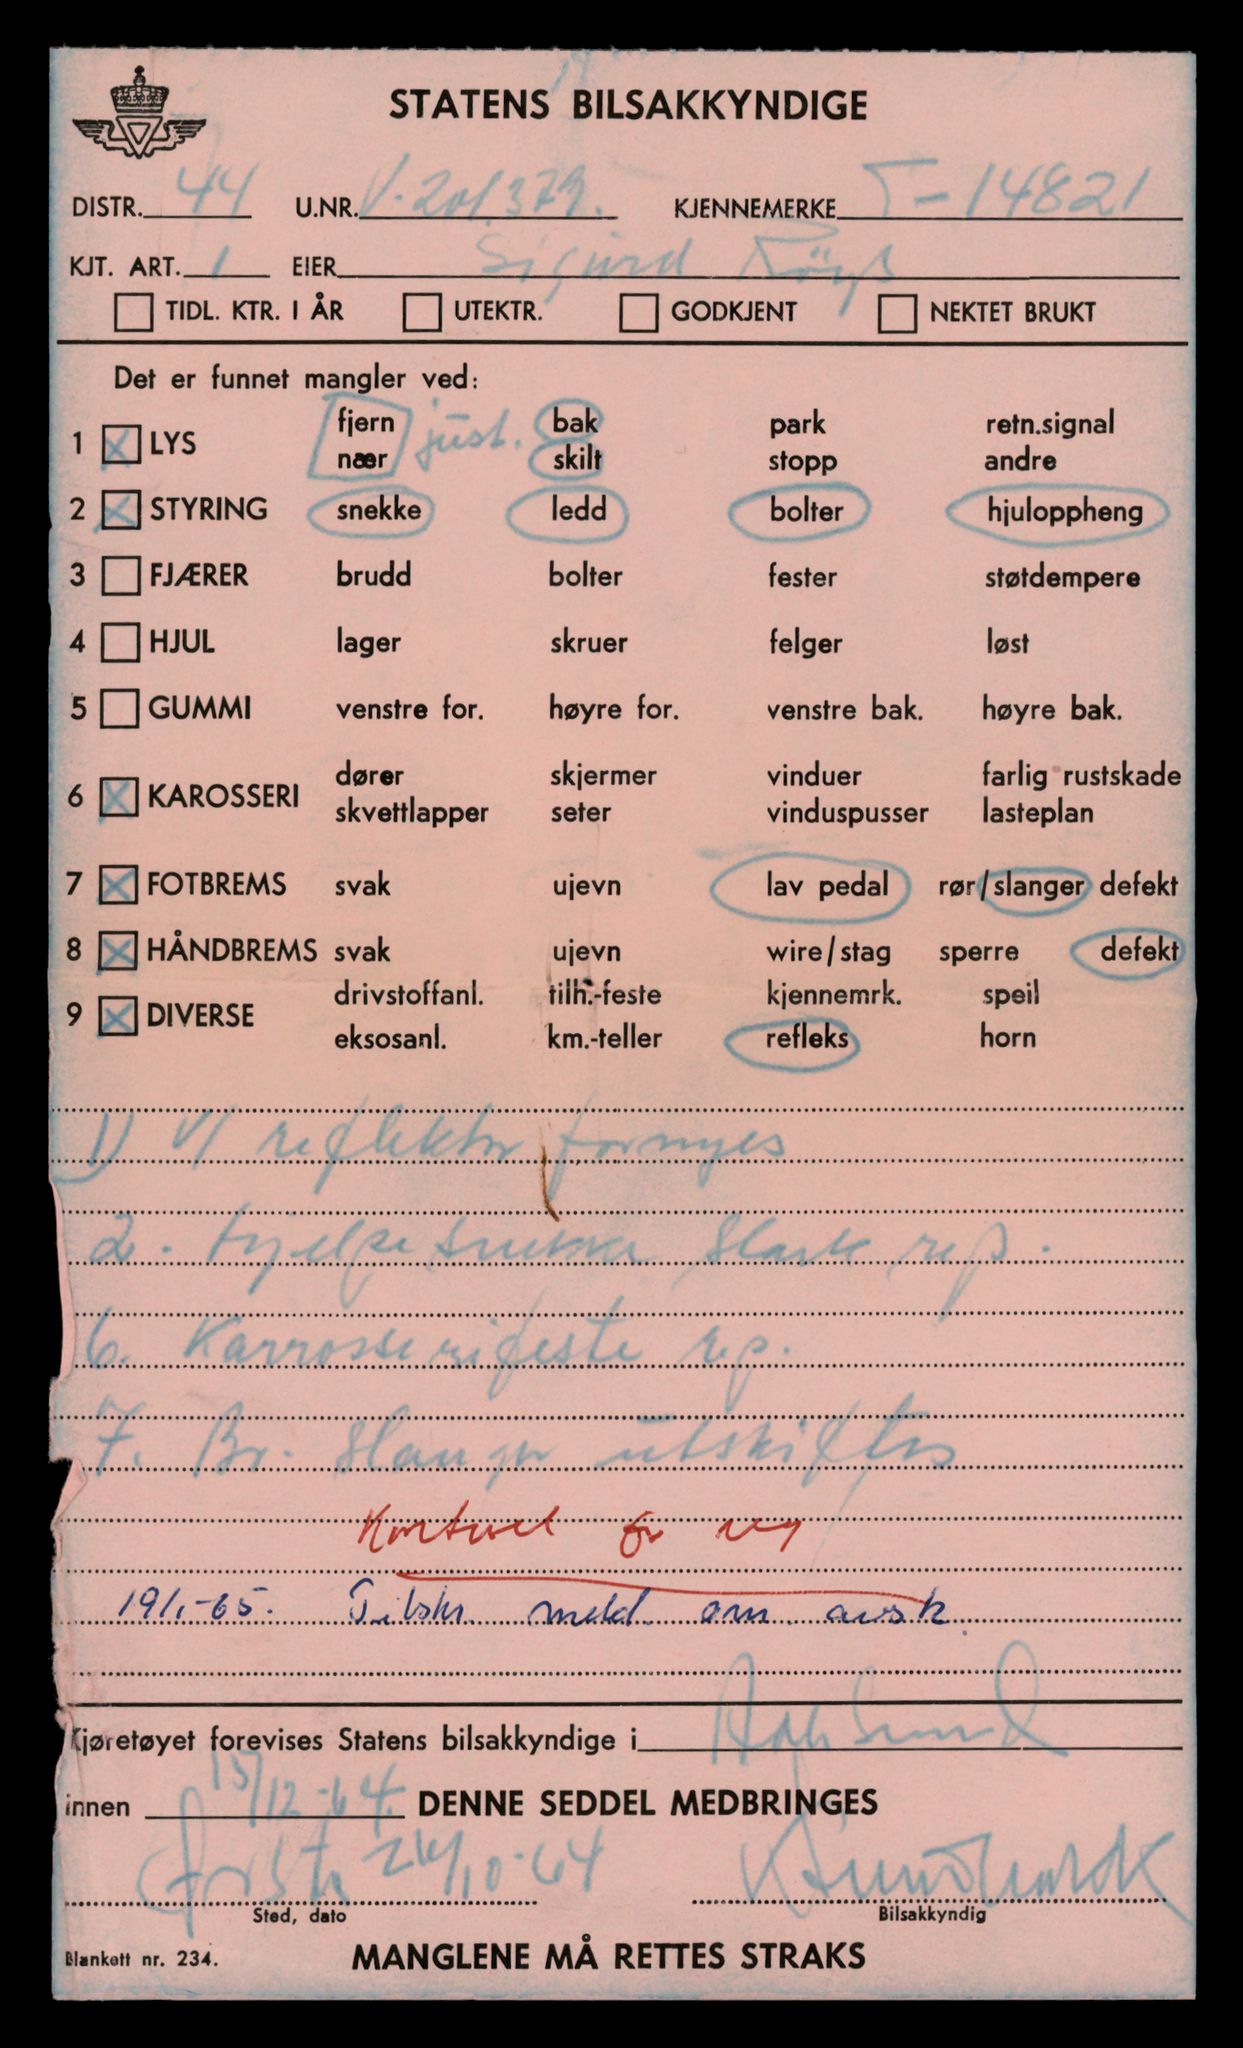 STATENS BILSAKKYNDIGE
DISTR. 44 U.NR. V-201.379. KJENNEMERKE T-14821
KJT. ART. 1 EIER Sigurd
TIDL. KTR. I ÅR UTEKTR. GODKJENT NEKTET BRUKT
Det er funnet mangler ved:
fjern just. bak park retn.signal
1 X LYS
nær skilt stopp andre
2 X STYRING snekke ledd bolter hjuloppheng
3 FJÆRER brudd bolter fester støtdempere
4 HJUL lager skruer felger løst
5 GUMMI venstre for. høyre for. venstre bak. høyre bak.
dører skjermer vinduer farlig rustskade
6 X KAROSSERI
skvettlapper seter vinduspusser lasteplan
7 X FOTBREMS svak ujevn lav pedal rør/slanger defekt
8 X HÅNDBREMS svak ujevn wire/stag sperre defekt
drivstoffanl. tilh.-feste kjennemrk. speil
9 X DIVERSE
eksosanl. km.-teller refleks horn
1) V/ reflektor fornyes
2. Hjelpesnekke slark rep.
6. Karrosserifeste rep.
7. Br. slanger utskiftes
19/1-65. Tilskr. meld. om avsk.
Kjøretøyet forevises Statens bilsakkyndige i
innen 15/12-64. DENNE SEDDEL MEDBRINGES
Ørsta 24/10-64
Sted, dato Bilsakkyndig
Blankett nr. 234. MANGLENE MÅ RETTES STRAKS